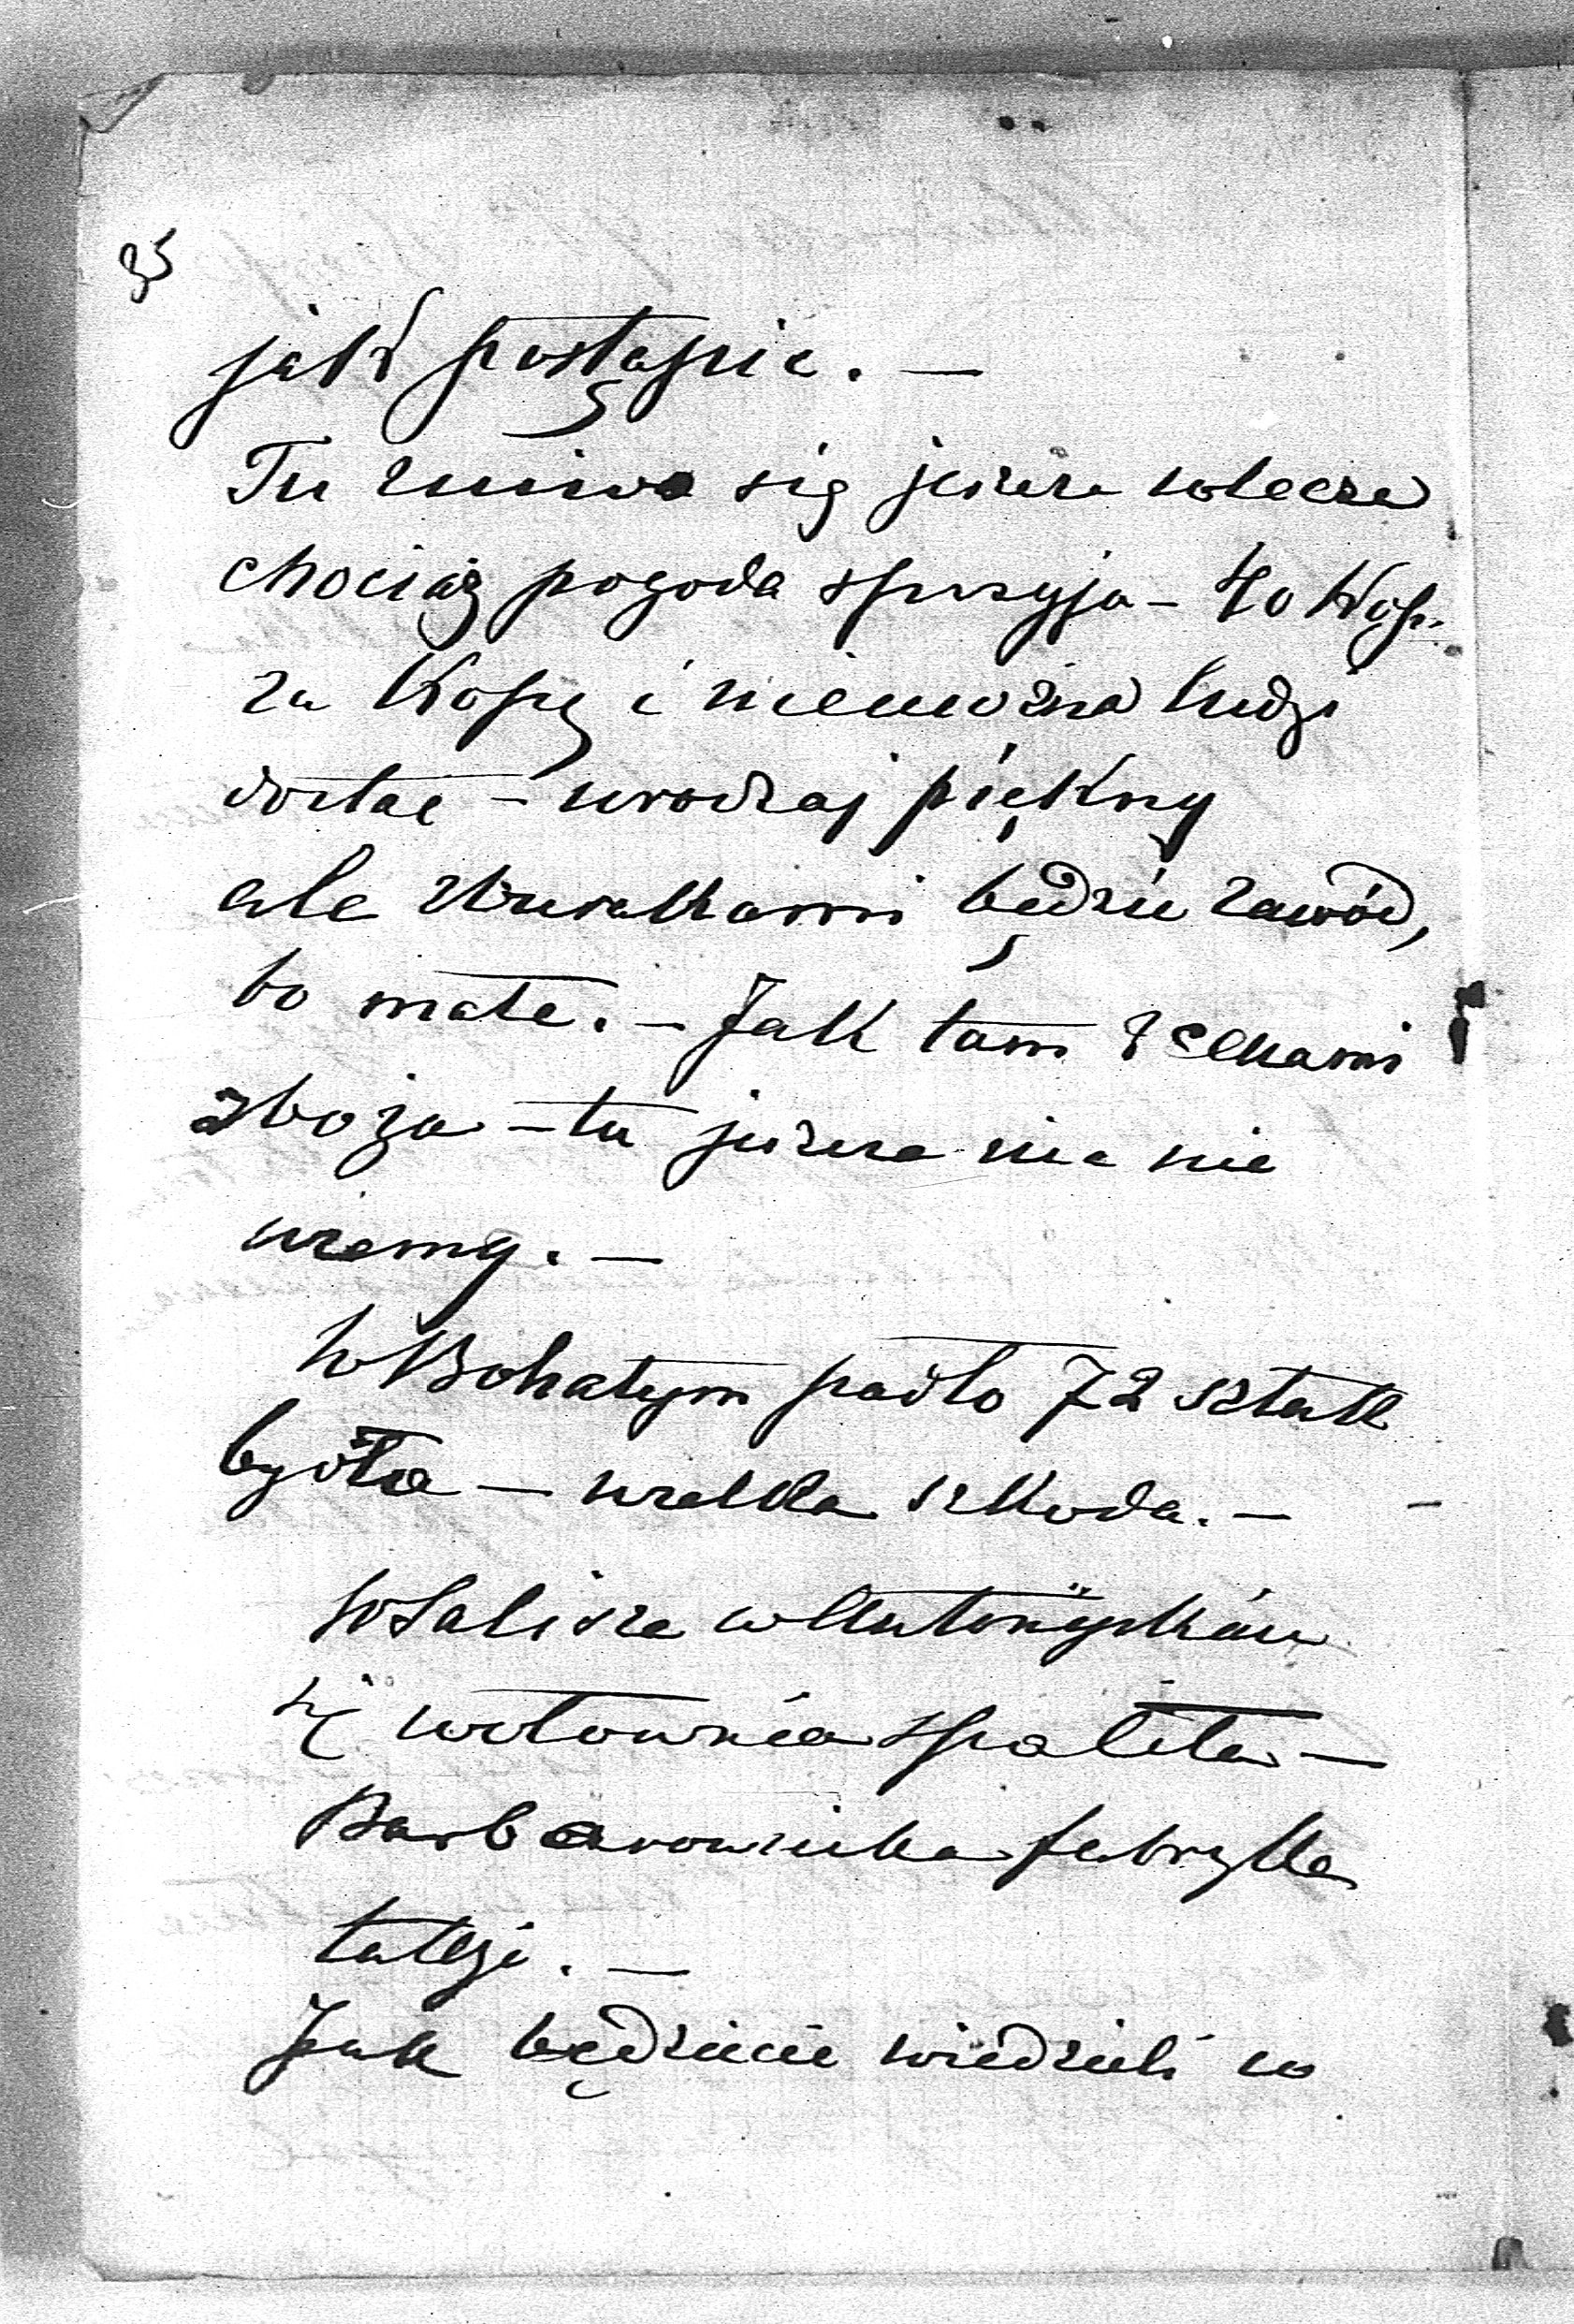 35
jak postąpić. —
Tu żniwo się jeszcze wlecze
chociaż pogoda sprzyja – 40 kop.
za kopę i niemożna ludzi
dostać – urodzaj piękny
ale z burakami będzie zawód,
bo małe. – Jak tam z cenami
zboża – tu jeszcze nic nie
wiemy. —
W Bohatym padło 72 sztuk
bydła — wielka szkoda. —
W Salisze w
się wołownia spaliła —
Barbarowiecka fabryka
także. —
Jak będziecie wiedzieli co